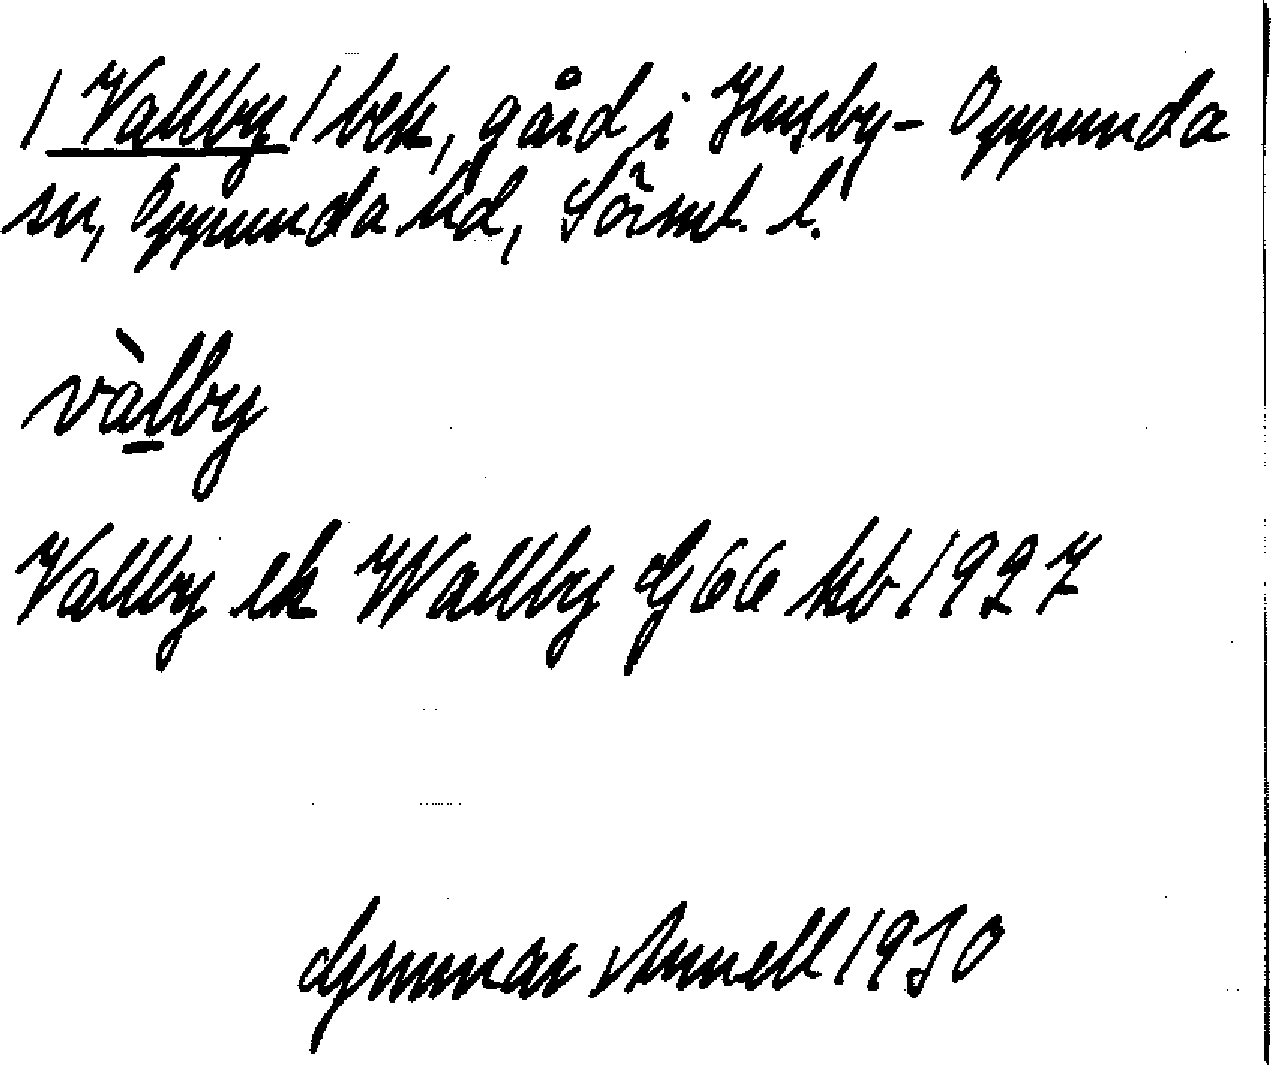 / Vallby / bek, gård i Husby-Oppunda
sn, Oppunda hd, Sörml. l.
vàlby
Vallby ek Wallby G66 kb 1927
Gunnar Arnell 1930